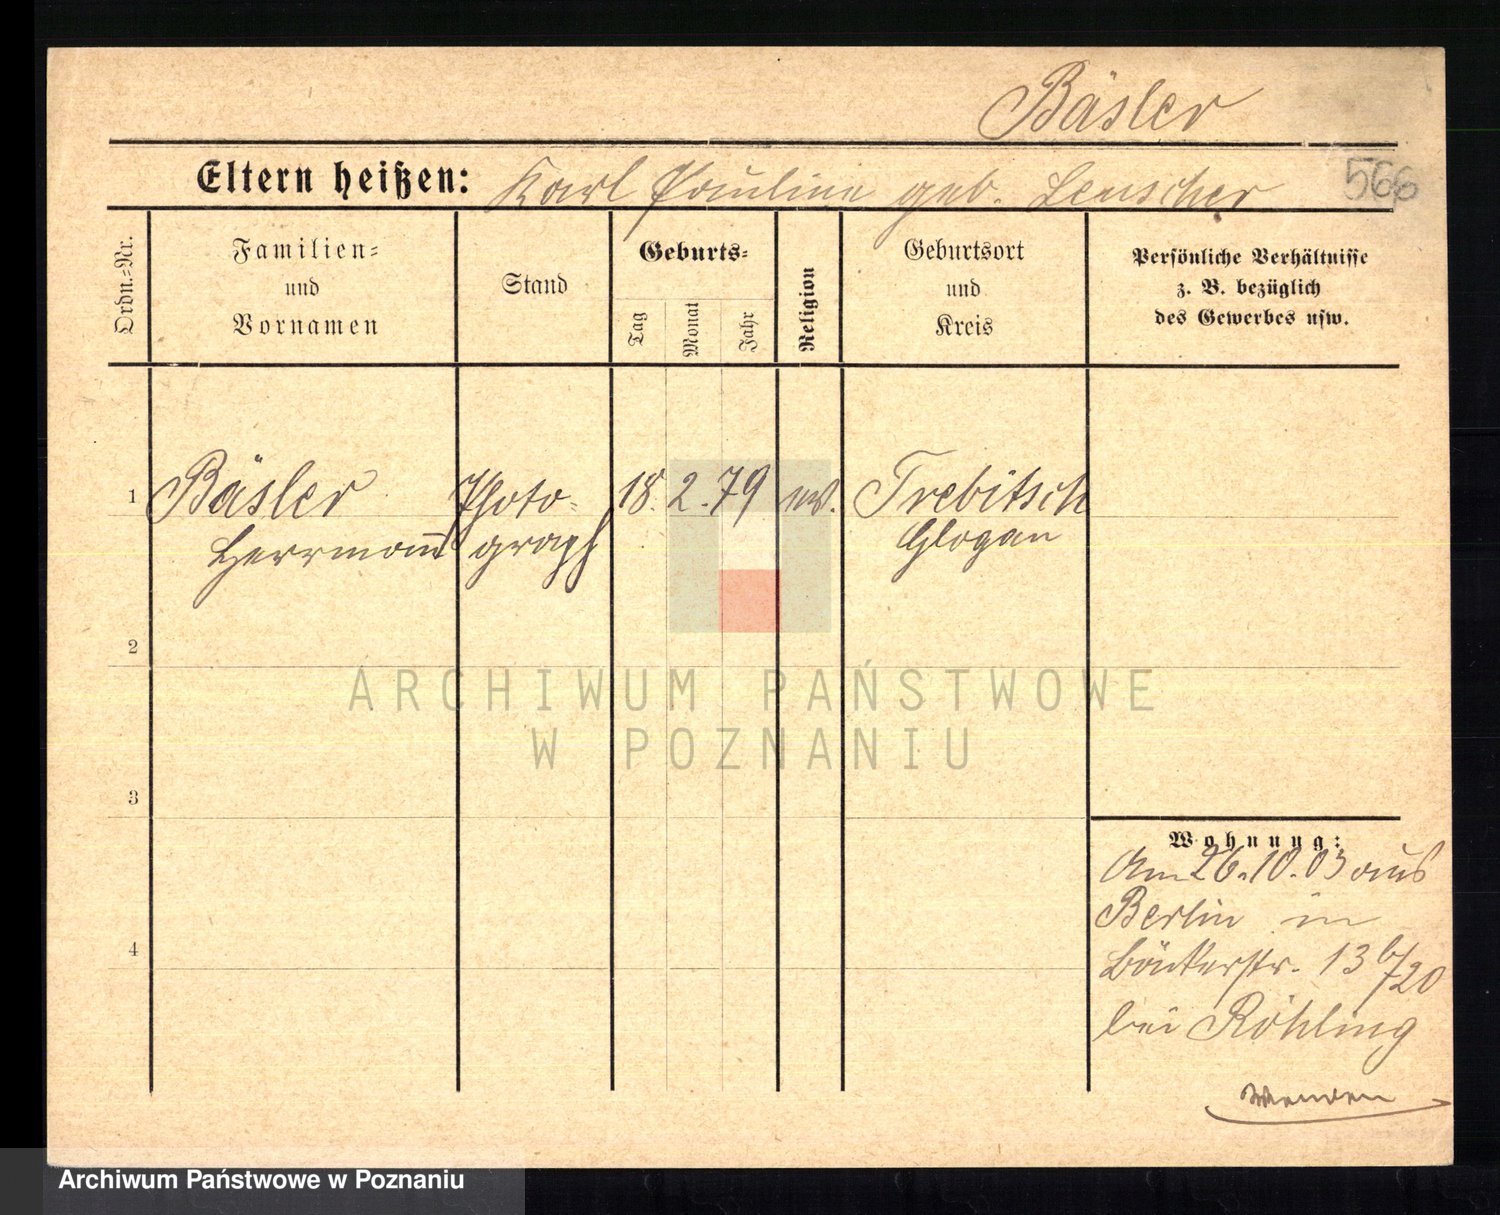 Bäsler
566
Eltern heißen: Karl Pauline geb. Leuscher
Ordn.=Nr.
Familien=
und
Vornamen
Stand
Geburts=
Tag
Monat
Jahr
Religion
Geburtsort
und
Kreis
Persönliche Verhältnisse
z. B. bezüglich
des Gewerbes usw.
1 Bäsler Photo= 18. 2. 79 ev. Trebitsch
Herrmann graph Glogau
2
3
4
Wohnung:
Am 26.10.03 aus
Berlin in
Bäckerstr. 13 b/20
bei Röhling
Wenden
ARCHIWUM PAŃSTWOWE
W POZNANIU
Archiwum Państwowe w Poznaniu